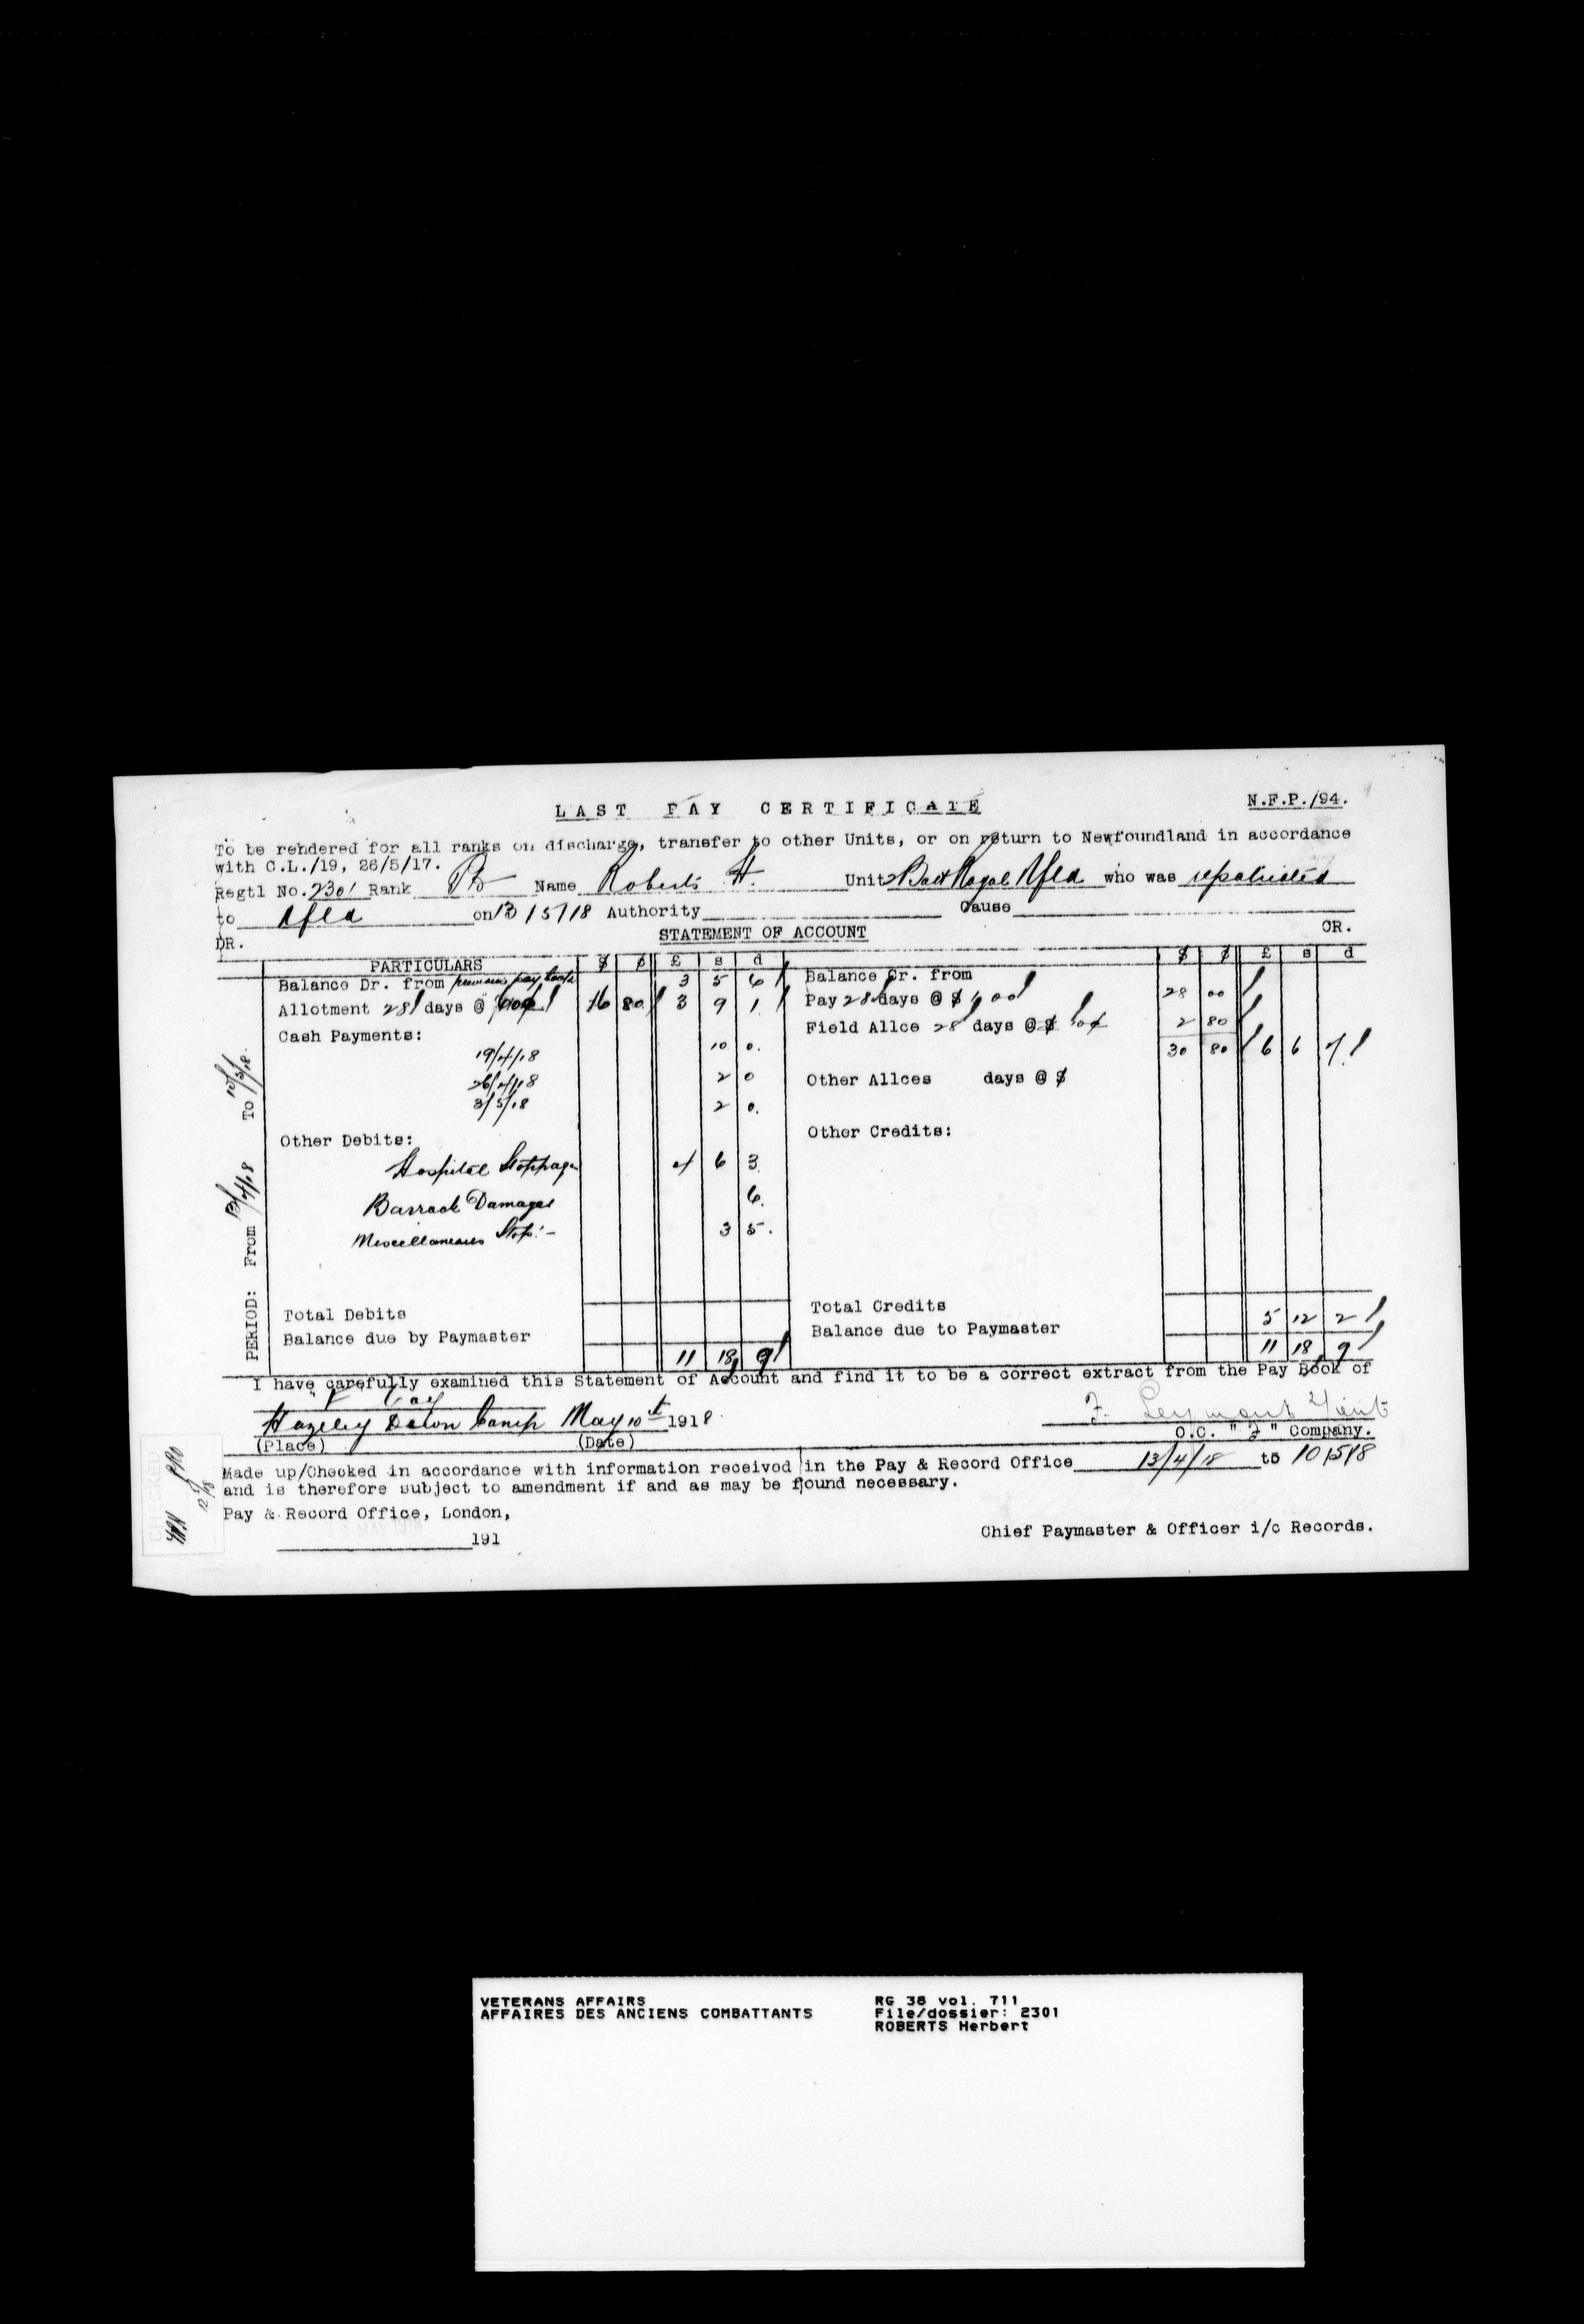 LAST PAY CERTIFICATE
N.F.P./94.
To be rendered for all ranks on discharge, transfer to other Units, or on return to Newfoundland in accordance
with C.L./19, 26/5/17.
Regtl No. 2301 Rank Pte Name Roberts H. Unit 2 Batt Royal Nfld who was repatriated
to Nfld on 13/5/18 Authority Cause
DR. STATEMENT OF ACCOUNT CR.
PARTICULARS $ ¢ £ s d $ ¢ £ s d
Balance Dr. from previous pay book 3 5 6 Balance Cr. from
Allotment 28 days @ 60¢ 16 80 3 9 1 Pay 28 days @ $ 1.00 28 00
Cash Payments: Field Allce 28 days @ $ 10¢ 2 80
30 80 6 6 7
19/4/18 10 0.
26/4/18 2 0 Other Allces days @ $
3/5/18 2 0.
Other Debits: Other Credits:
Hospital Stoppages 4 6 3
Barrack Damages 6.
Miscellaneous Stop: - 3 5.
Total Debits Total Credits
Balance due by Paymaster Balance due to Paymaster 5 12 2
11 18 9 11 18 9
PERIOD: From 13/4/18 To 10/5/18.
I have carefully examined this Statement of Account and find it to be a correct extract from the Pay Book of
"F" Coy
Hazeley Down Camp May 10th 1918.
(Place) (Date) O.C. "F" Company.
Made up/Checked in accordance with information received in the Pay & Record Office 13/4/18 to 10/5/18
and is therefore subject to amendment if and as may be found necessary.
Pay & Record Office, London,
191
Chief Paymaster & Officer i/c Records.
CHECKED
VETERANS AFFAIRS RG 38 vol. 711
AFFAIRES DES ANCIENS COMBATTANTS File/dossier: 2301
ROBERTS Herbert